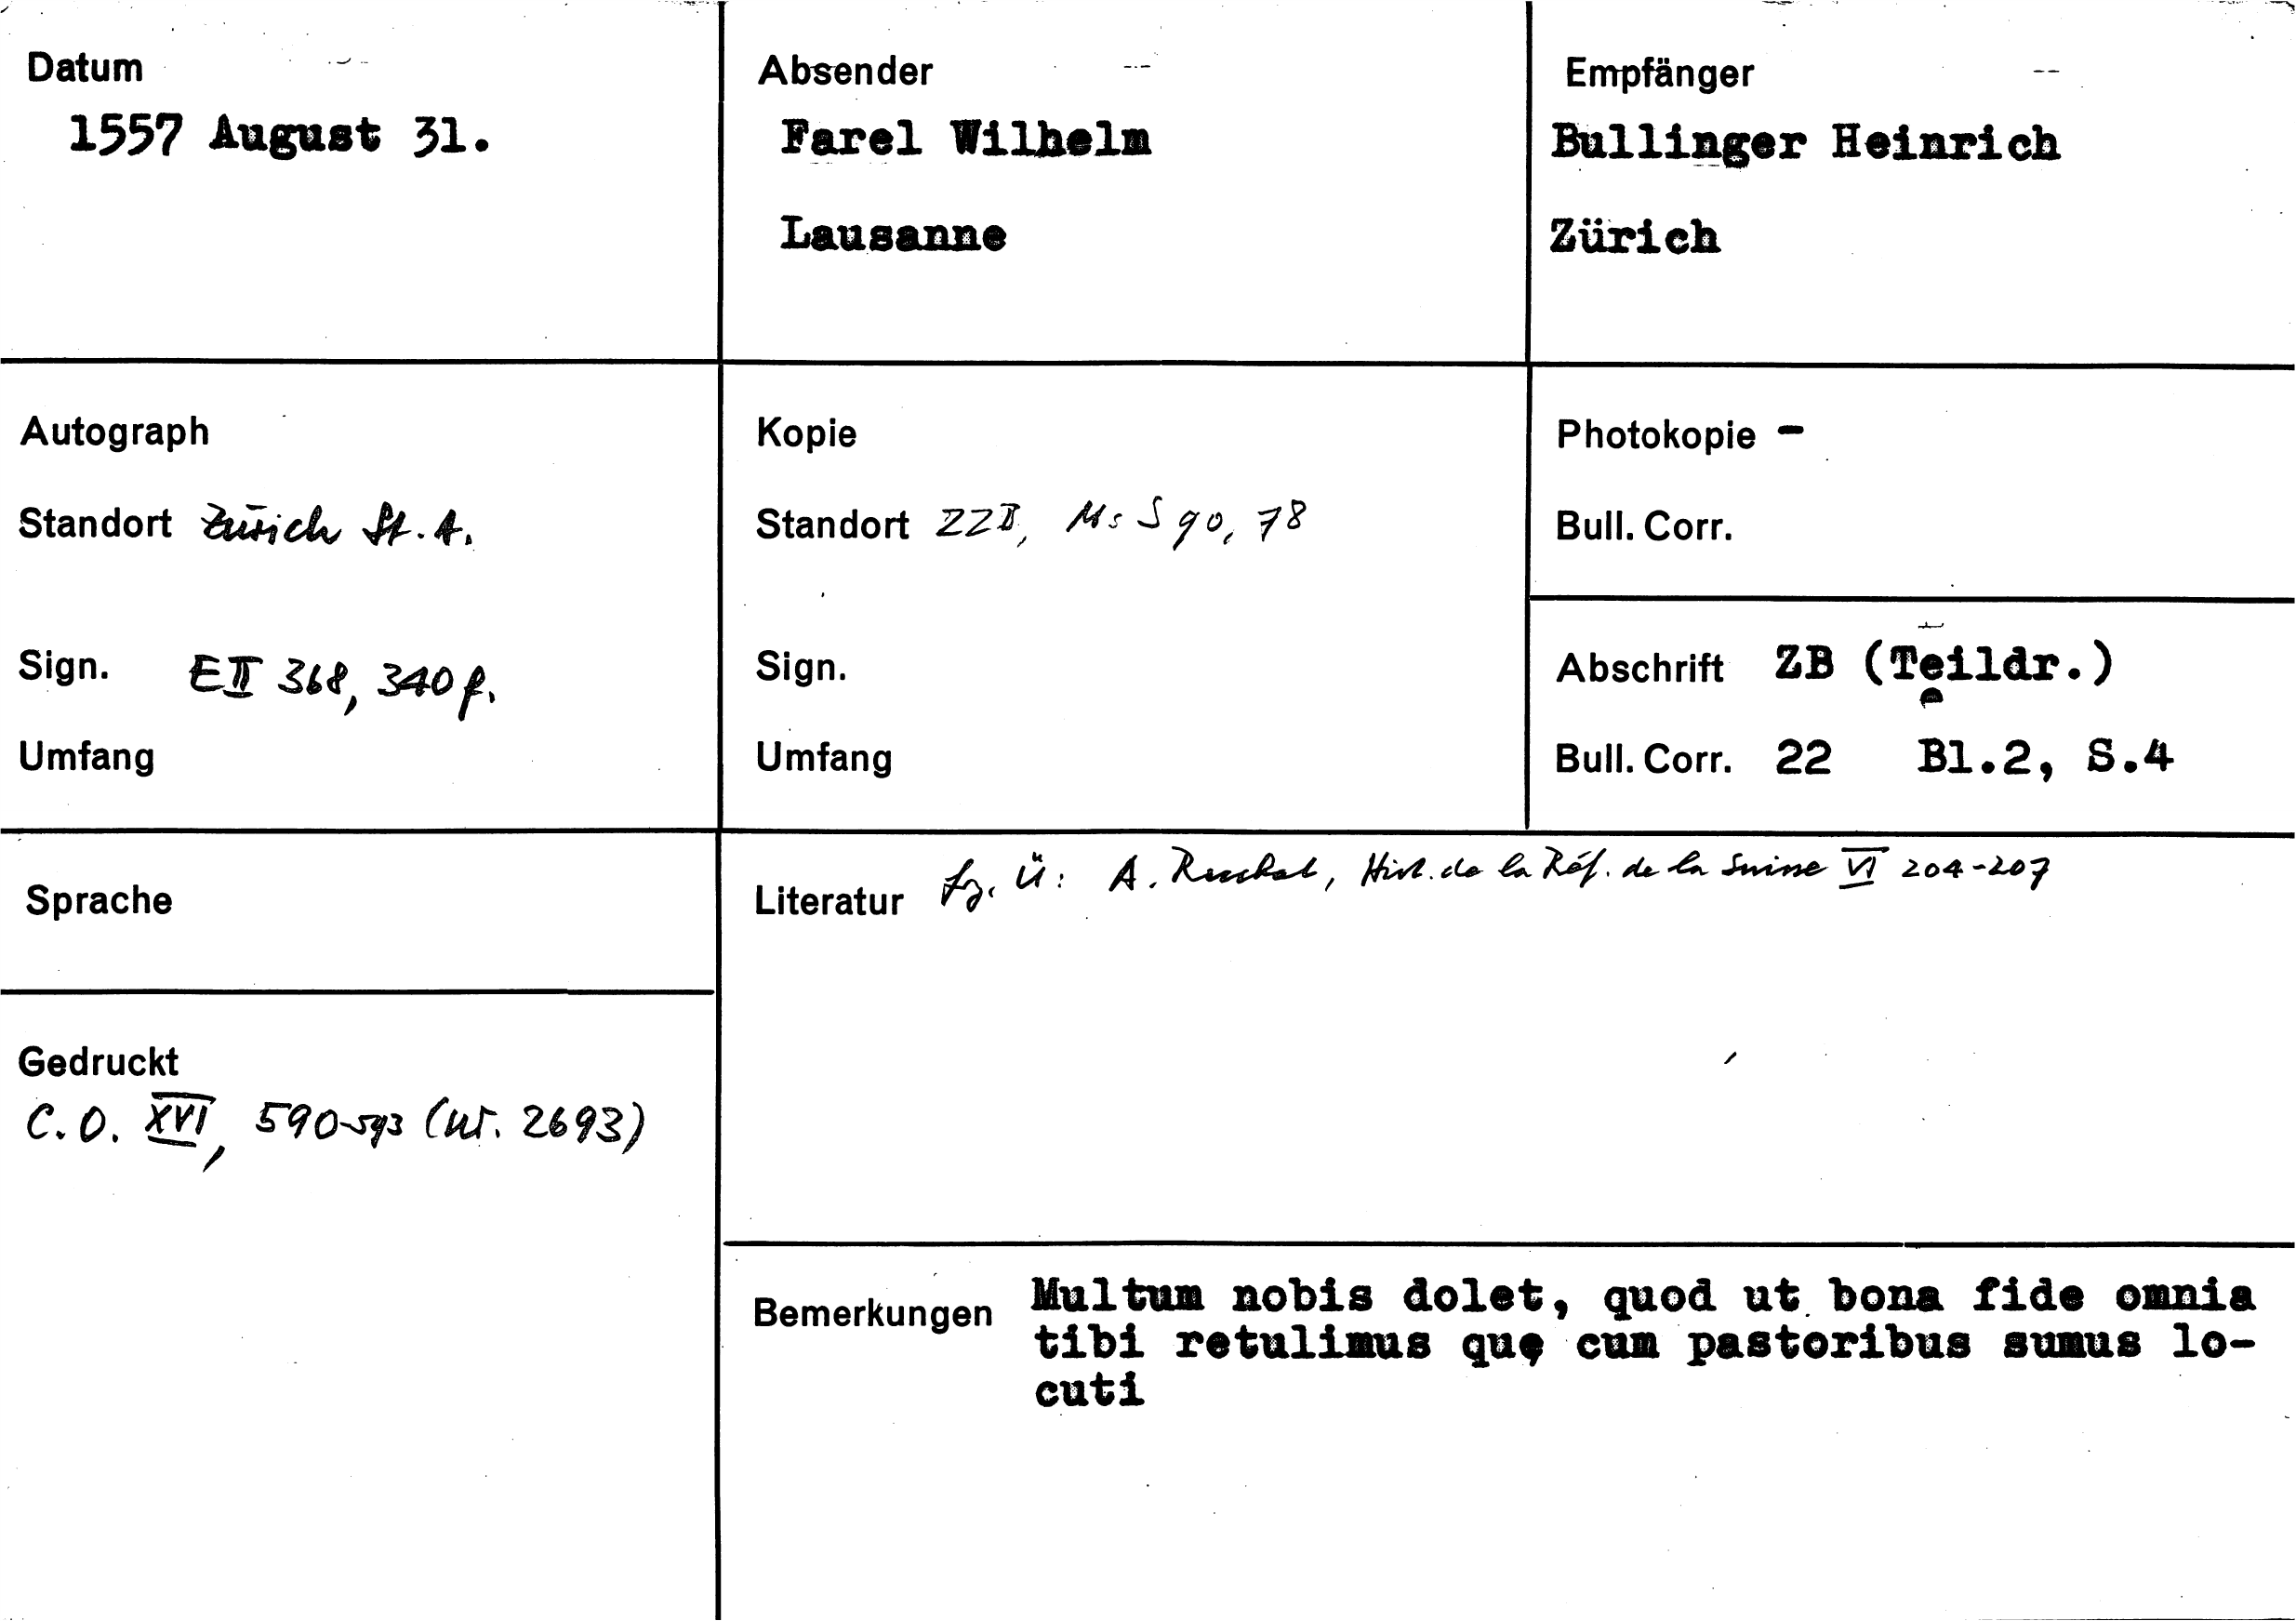 Datum
1557 August 31.
Absender
Farel Wilhelm
Lausanne
Empfänger
Bullinger Heinrich
Zürich
Autograph
Standort Zürich St. A.
Sign. E II 368, 340 f.
Umfang
Kopie
Standort ZZB, Ms S 90, 78
Sign.
Umfang
Photokopie -
Bull. Corr.
Abschrift ZB (Teildr.)
Bull. Corr. 22 Bl.2, S.4
Sprache
Gedruckt
C. O. XVI, 590-593 (Nr. 2693)
Literatur fz. Ü: A. Ruchat, Hist. de la Réf. de la Suisse VI 204-207
Bemerkungen Multum nobis dolet, quod ut bona fide omnia
tibi retulimus quę cum pastoribus sumus lo-
cuti